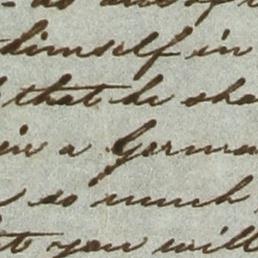 as one of
himself in
that he sha
in a Germa
so much
you will